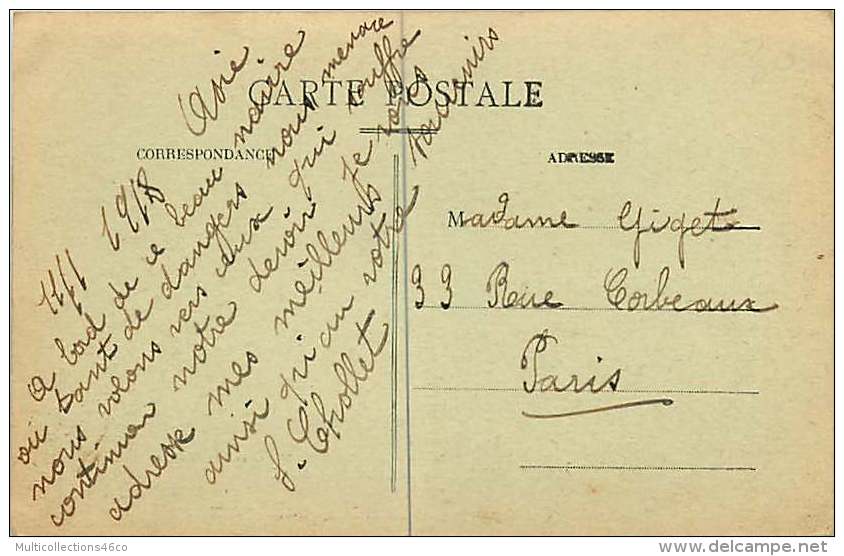 CARTE POSTALE
CORRESPONDANCE
ADRESSE
Asie
11/1 1918
A bord de ce beau navire
où tant de dangers nous menace
nous volons vers ceux qui souffre
continuer notre devoir je vous
adresse mes meilleurs souvenirs
ainsi qu'au votre
S. Chollet
Madame Giget
33 Rue Corbeaux
Paris
Multicollections46co
www.delcampe.net